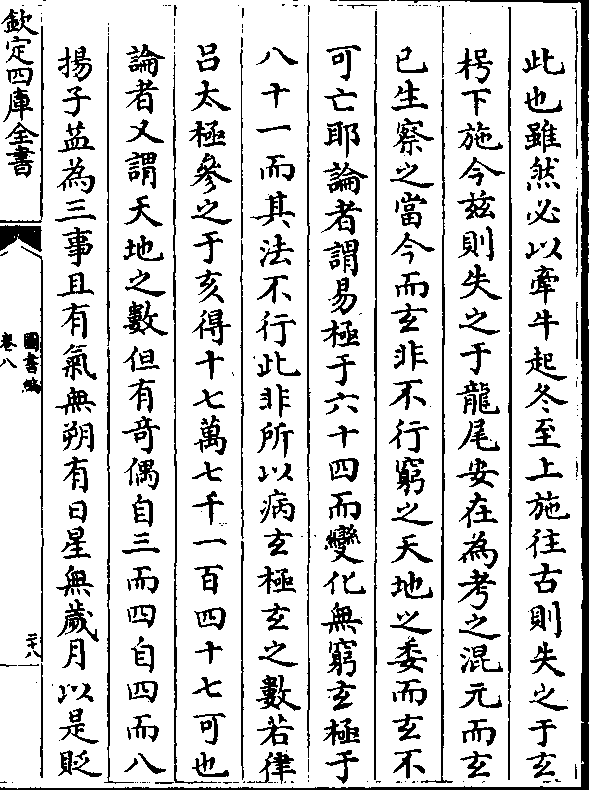 此也雖然必以牽牛起冬至上施往古則失之于玄
枵下施今兹則失之于龍尾安在為考之混元而玄
已生察之當今而玄非不行窮之天地之委而玄不
可亡耶論者謂易極于六十四而變化無窮玄極于
八十一而其法不行此非所以病玄極玄之數若律
吕太極參之于亥得十七萬七千一百四十七可也
論者又謂天地之數但有奇偶自三而四自四而八
揚子葢為三事且有氣無朔有日星無歲月以是貶
欽定四庫全書
圖書編
卷八
二十八